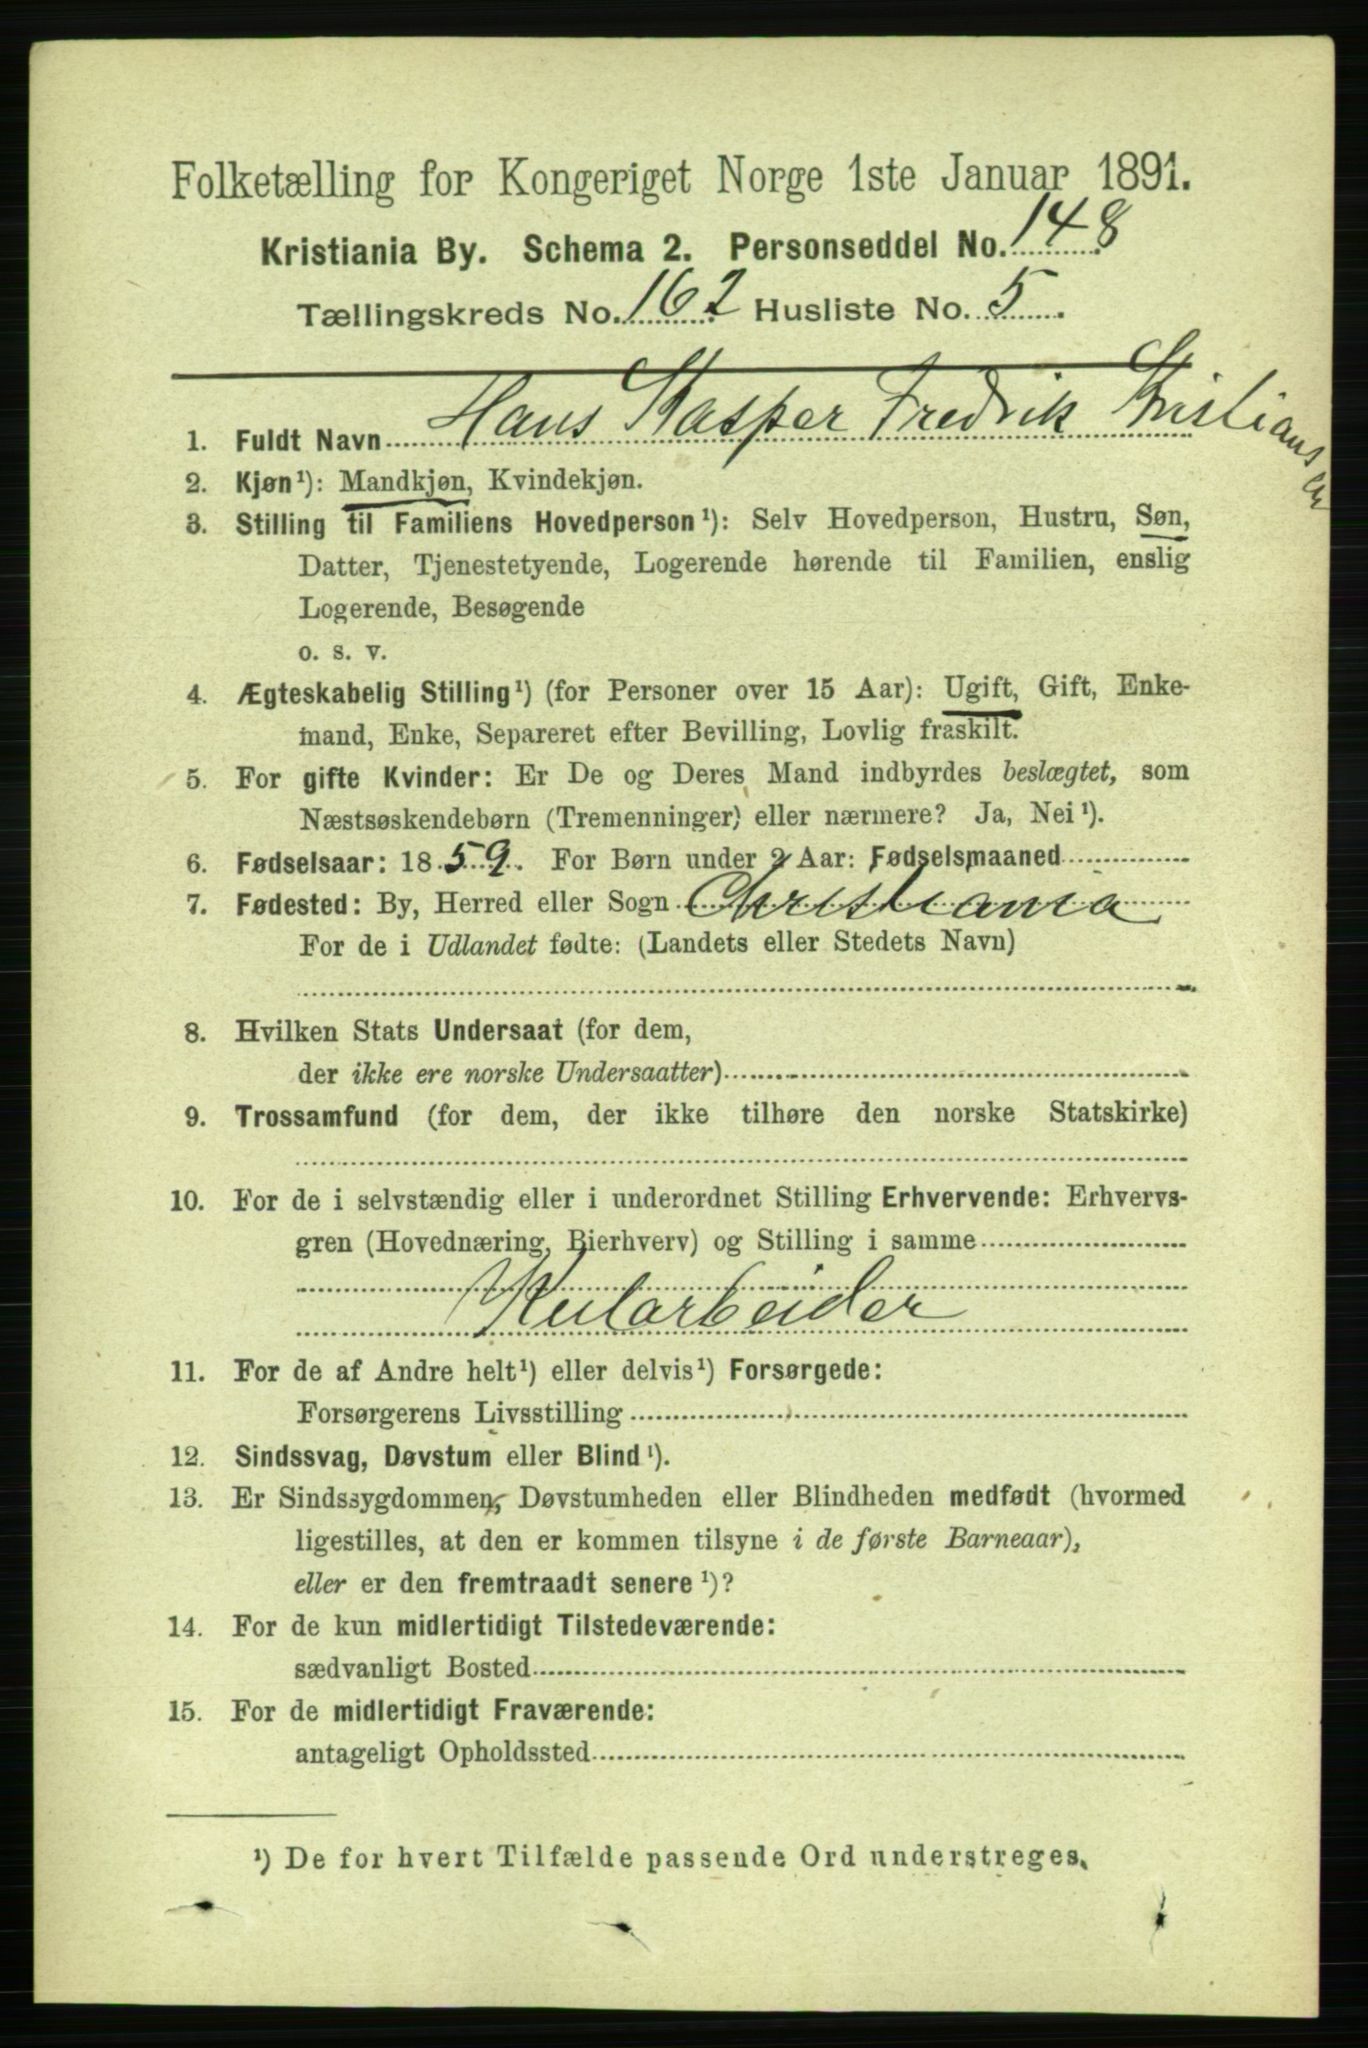 Folketælling for Kongeriget Norge 1ste Januar 1891.
Kristiania By. Schema 2. Personseddel No. 148
Tællingskreds No. 162 Husliste No. 5.
1. Fuldt Navn Hans Kasper Fredrik Kristiansen
2. Kjøn¹): Mandkjøn, Kvindekjøn.
3. Stilling til Familiens Hovedperson¹): Selv Hovedperson, Hustru, Søn,
Datter, Tjenestetyende, Logerende hørende til Familien, enslig
Logerende, Besøgende
o. s. v.
4. Ægteskabelig Stilling¹) (for Personer over 15 Aar): Ugift, Gift, Enke-
mand, Enke, Separeret efter Bevilling, Lovlig fraskilt.
5. For gifte Kvinder: Er De og Deres Mand indbyrdes beslægtet, som
Næstsøskendebørn (Tremenninger) eller nærmere? Ja, Nei¹).
6. Fødselsaar: 1859. For Børn under 2 Aar: Fødselsmaaned
7. Fødested: By, Herred eller Sogn Christiania
For de i Udlandet fødte: (Landets eller Stedets Navn)
8. Hvilken Stats Undersaat (for dem,
der ikke ere norske Undersaatter)
9. Trossamfund (for dem, der ikke tilhøre den norske Statskirke)
10. For de i selvstændig eller i underordnet Stilling Erhvervende: Erhvervs-
gren (Hovednæring, Bierhverv) og Stilling i samme
Kularbeider
11. For de af Andre helt¹) eller delvis¹) Forsørgede:
Forsørgerens Livsstilling
12. Sindssvag, Døvstum eller Blind¹).
13. Er Sindssygdommen, Døvstumheden eller Blindheden medfødt (hvormed
ligestilles, at den er kommen tilsyne i de første Barneaar),
eller er den fremtraadt senere¹)?
14. For de kun midlertidigt Tilstedeværende:
sædvanligt Bosted
15. For de midlertidigt Fraværende:
antageligt Opholdssted
¹) De for hvert Tilfælde passende Ord understreges.